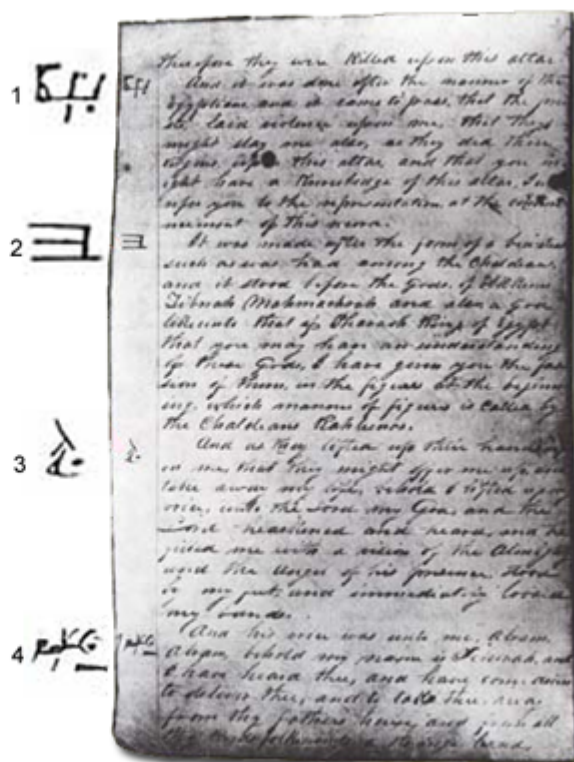 therefore they were killed upon this altar
1
And it was done after the manner of the
Egyptians and it came to pass, that the
laid violence upon me, that they
might slay me also, as they did those
virgins upon this altar, and that you
ight have a knowledge of this altar, I
refer you to the representation, at the
mencement of this
2
It was made after the form of a
such as was had among the Chaldeans
and it stood before the Gods, of Elkkener
Zibnah Mahmachrah and also a God
like unto that of Pharaoh King of Egypt
that you may have an understanding
of these Gods, I have given you the fas
ion of them, in the figures at the beginn
ing, which manner of figures is called by
the Chaldeans
3
And as they lifted up their hands
on me, that they might offer me up, and
take away my life, behold I lifted up my
voice, unto the Lord my God, and the
Lord hearkened and heard, and he
filled me with a vision of the Almighty
and the angel of his presence stood
by my feet, and immediately loosed
my bands.
4
And his voice was unto me, Abram
Abram, behold my name is and
I have heard thee, and have come down
to deliver thee, and to take thee away
from thy fathers house, and from all